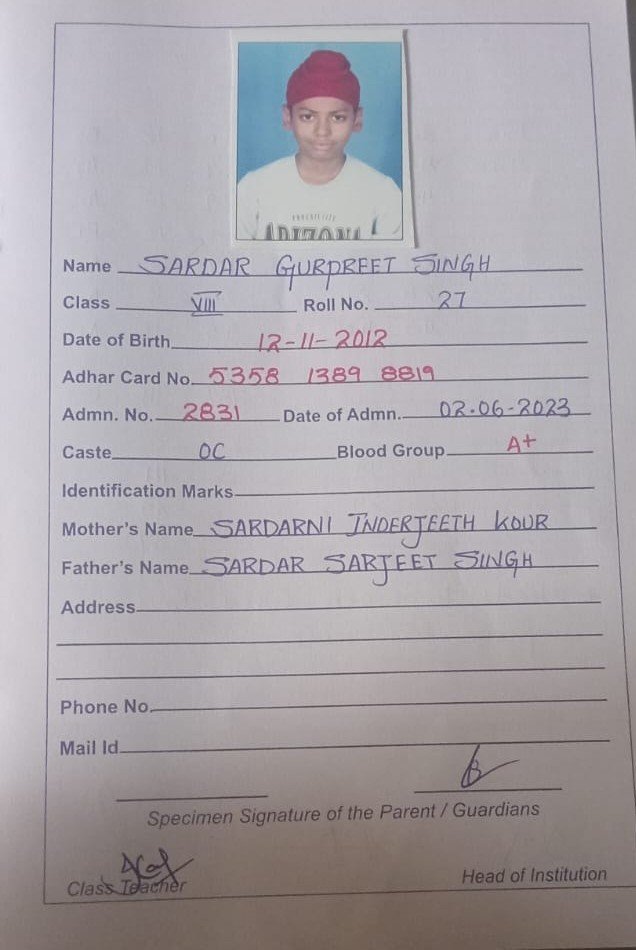 ARIZONA
Name SARDAR GURPREET SINGH
Class VIII Roll No. 27
Date of Birth 12-11-2012
Adhar Card No. 5358 1389 8819
Admn. No. 2831 Date of Admn. 02.06-2023
Caste OC Blood Group A+
Identification Marks
Mother's Name SARDARNI INDERJEETH KOUR
Father's Name SARDAR SARJEET SINGH
Address
Phone No.
Mail Id
Specimen Signature of the Parent / Guardians
Class Teacher Head of Institution